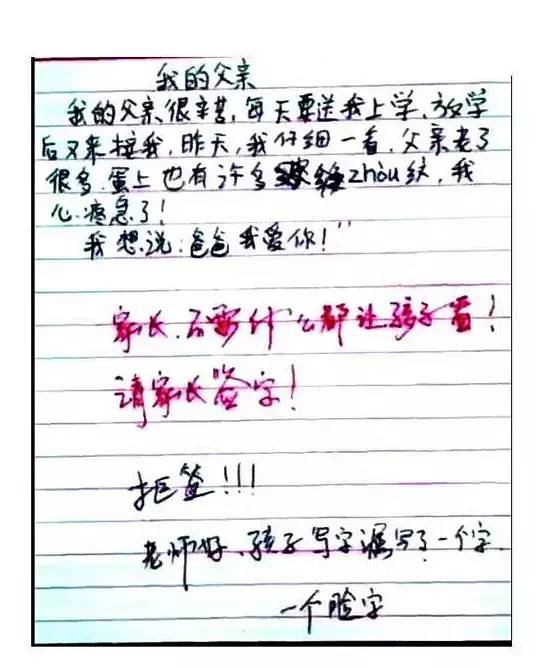 我的父亲
我的父亲很辛苦,每天要送我上学,放学
后又来接我,昨天,我仔细一看,父亲老了
很多,蛋上也有许多zhòu纹,我
心疼急了!
我想说:爸爸我爱你!”
家长,不要什么都让孩子看!
请家长签字!
拒签!!!
老师好、孩子写字漏写了一个字
一个脸字